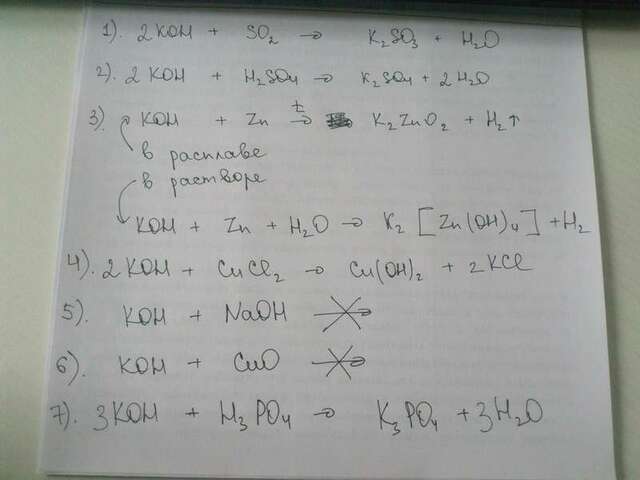 1). 2KOH + SO₂ → K₂SO₃ + H₂O
2). 2KOH + H₂SO₄ → K₂SO₄ + 2H₂O
3). KOH + Zn t→ K₂ZnO₂ + H₂↑
в расплаве
в растворе
KOH + Zn + H₂O → K₂[Zn(OH)₄] + H₂
4). 2KOH + CuCl₂ → Cu(OH)₂ + 2KCl
5). KOH + NaOH
6). KOH + CuO
7). 3KOH + H₃PO₄ → K₃PO₄ + 3H₂O